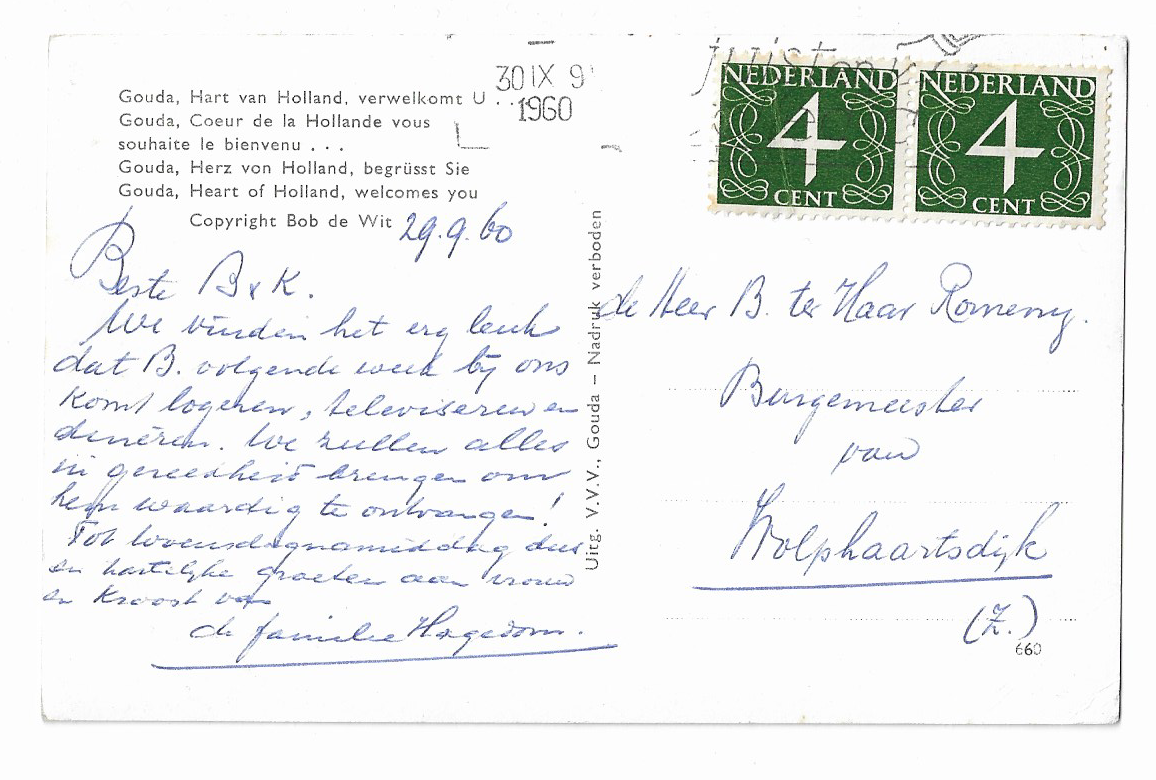 30 IX 9
1960
NEDERLAND
4
CENT
NEDERLAND
4
CENT
Gouda, Hart van Holland, verwelkomt U . .
Gouda, Coeur de la Hollande vous
souhaite le bienvenu . . .
Gouda, Herz von Holland, begrüsst Sie
Gouda, Heart of Holland, welcomes you
Copyright Bob de Wit
29.9.60
Beste B & K.
We vinden het erg leuk
dat B. volgende week bij ons
komt logeren, televiseren en
dineren. We zullen alles
in gereedheid brengen om
hem waardig te ontvangen!
Tot woensdagnamiddag dus
en hartelijke groeten aan vrouw
en kroost van
de familie Hagedoorn.
Uitg. V.V.V., Gouda – Nadruk verboden
de Heer B. ter Haar Romeny.
Burgemeester
van
Wolphaartsdijk
(Z.)
660